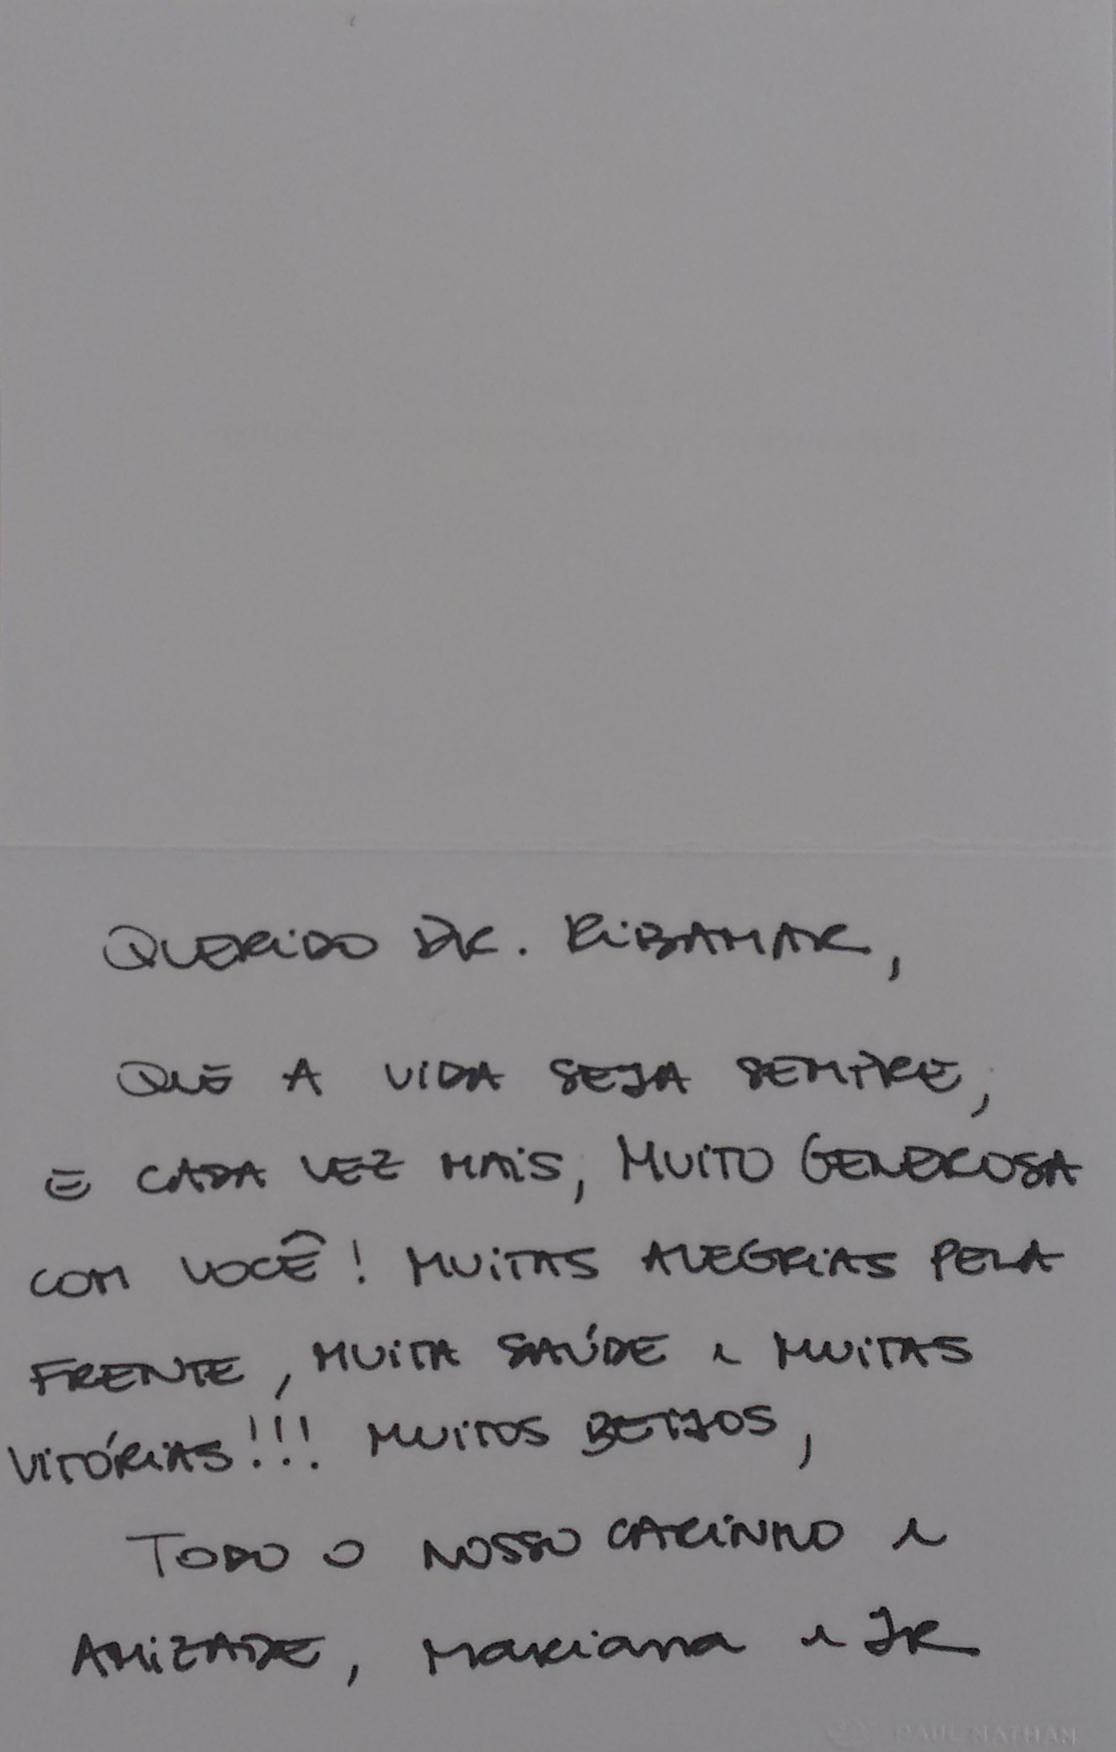 QUERIDO DR. RIBAMAR,
QUE A VIDA SEJA SEMPRE,
E CADA VEZ MAIS, MUITO GENEROSA
COM VOCÊ! MUITAS ALEGRIAS PELA
FRENTE, MUITA SAÚDE E MUITAS
VITÓRIAS!!! MUITOS BEIJOS,
TODO O NOSSO CARINHO E
AMIZADE, Mariana e JR
PAUL NATHAN